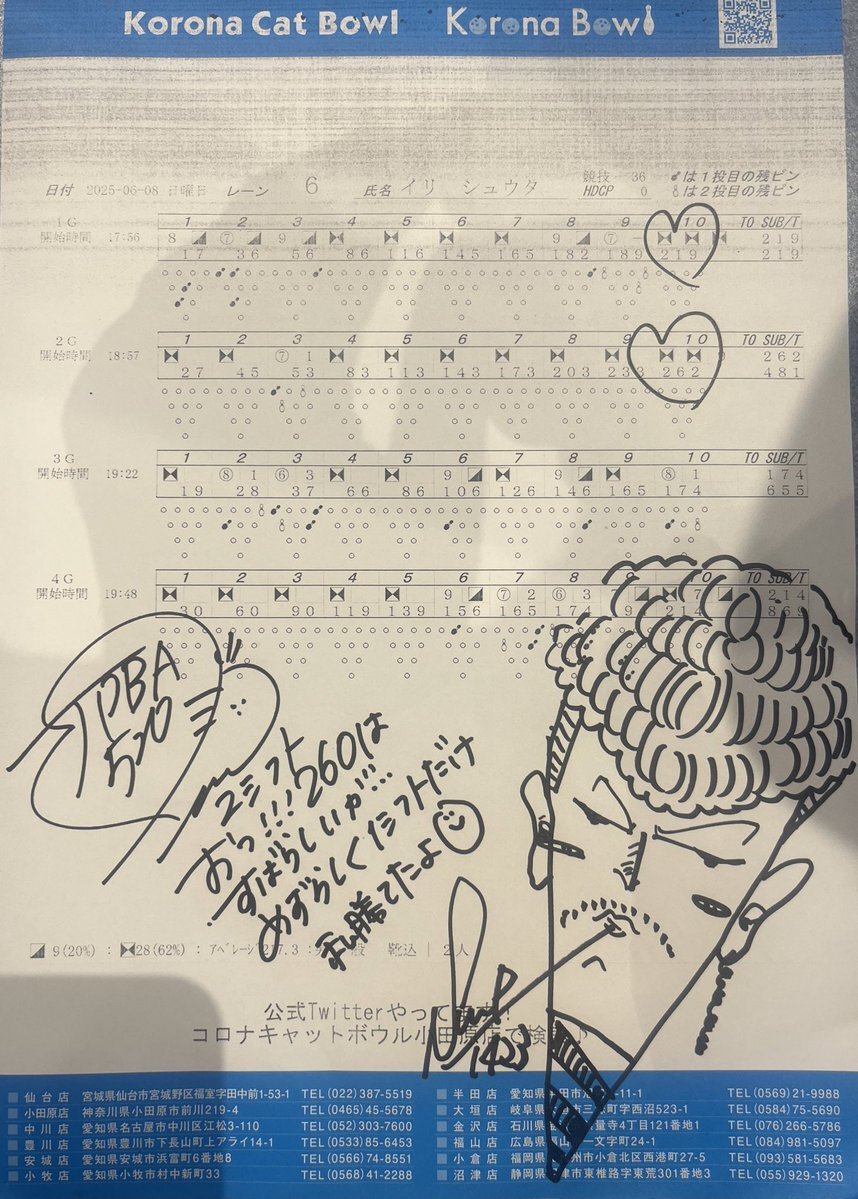 Korona Cat Bowl Korona Bowl
日付 2025-06-08 日曜日 レーン 6 氏名 イリ シュウタ
競技 36 は1投目の残ピン
HDCP 0 は2投目の残ピン
1G 1 2 3 4 5 6 7 8 9 10 TO SUB/T
開始時間 17:56 8 ⑦ 9 9 ⑦ - 219
17 36 56 86 116 145 165 182 189 219 219
2G 1 2 3 4 5 6 7 8 9 10 TO SUB/T
開始時間 18:57 ⑦ 1 9 262
27 45 53 83 113 143 173 203 233 262 481
3G 1 2 3 4 5 6 7 8 9 10 TO SUB/T
開始時間 19:22 ⑧ 1 ⑥ 3 9 9 ⑧ 1 174
19 28 37 66 86 106 126 146 165 174 655
4G 1 2 3 4 5 6 7 8 9 10 TO SUB/T
開始時間 19:48 9 ⑦ 2 ⑥ 3 7 7 214
30 60 90 119 139 156 165 174 214 869
JPBA
570
おら!!!260は
すばらしいが…
めずらしく
だけ
私勝てたよ
9(20%) : 28(62%) : ｱﾍﾞﾚｰｼﾞ217.3 : 靴込 | 2人
公式Twitterやってます!
コロナキャットボウル小田原店で検索♪
1423
仙台店 宮城県仙台市宮城野区福室字田中前1-53-1 TEL(022)387-5519
小田原店 神奈川県小田原市前川219-4 TEL(0465)45-5678
中川店 愛知県名古屋市中川区江松3-110 TEL(052)303-7600
豊川店 愛知県豊川市下長山町上アライ14-1 TEL(0533)85-6453
安城店 愛知県安城市浜富町6番地8 TEL(0566)74-8551
小牧店 愛知県小牧市村中新町33 TEL(0568)41-2288
半田店 愛知県 田市 -11-1 TEL(0569)21-9988
大垣店 岐阜県 市三 町字西沼523-1 TEL(0584)75-5690
金沢店 石川県 量寺4丁目121番地1 TEL(076)266-5786
福山店 広島県 山 一文字町24-1 TEL(084)981-5097
小倉店 福岡県 州市小倉北区西港町27-5 TEL(093)581-5683
沼津店 静岡県 津市東椎路字東荒301番地3 TEL(055)929-1320